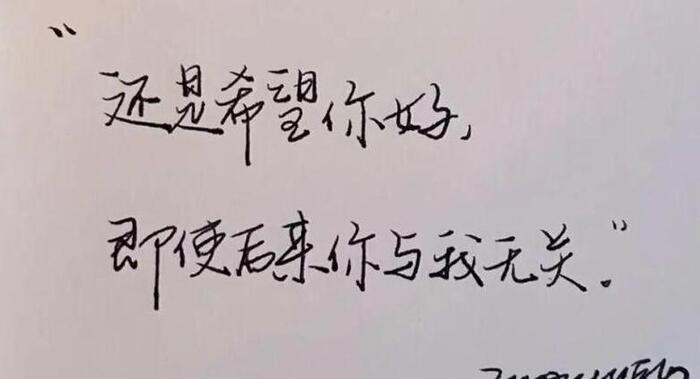 “还是希望你好,
即使后来你与我无关.”